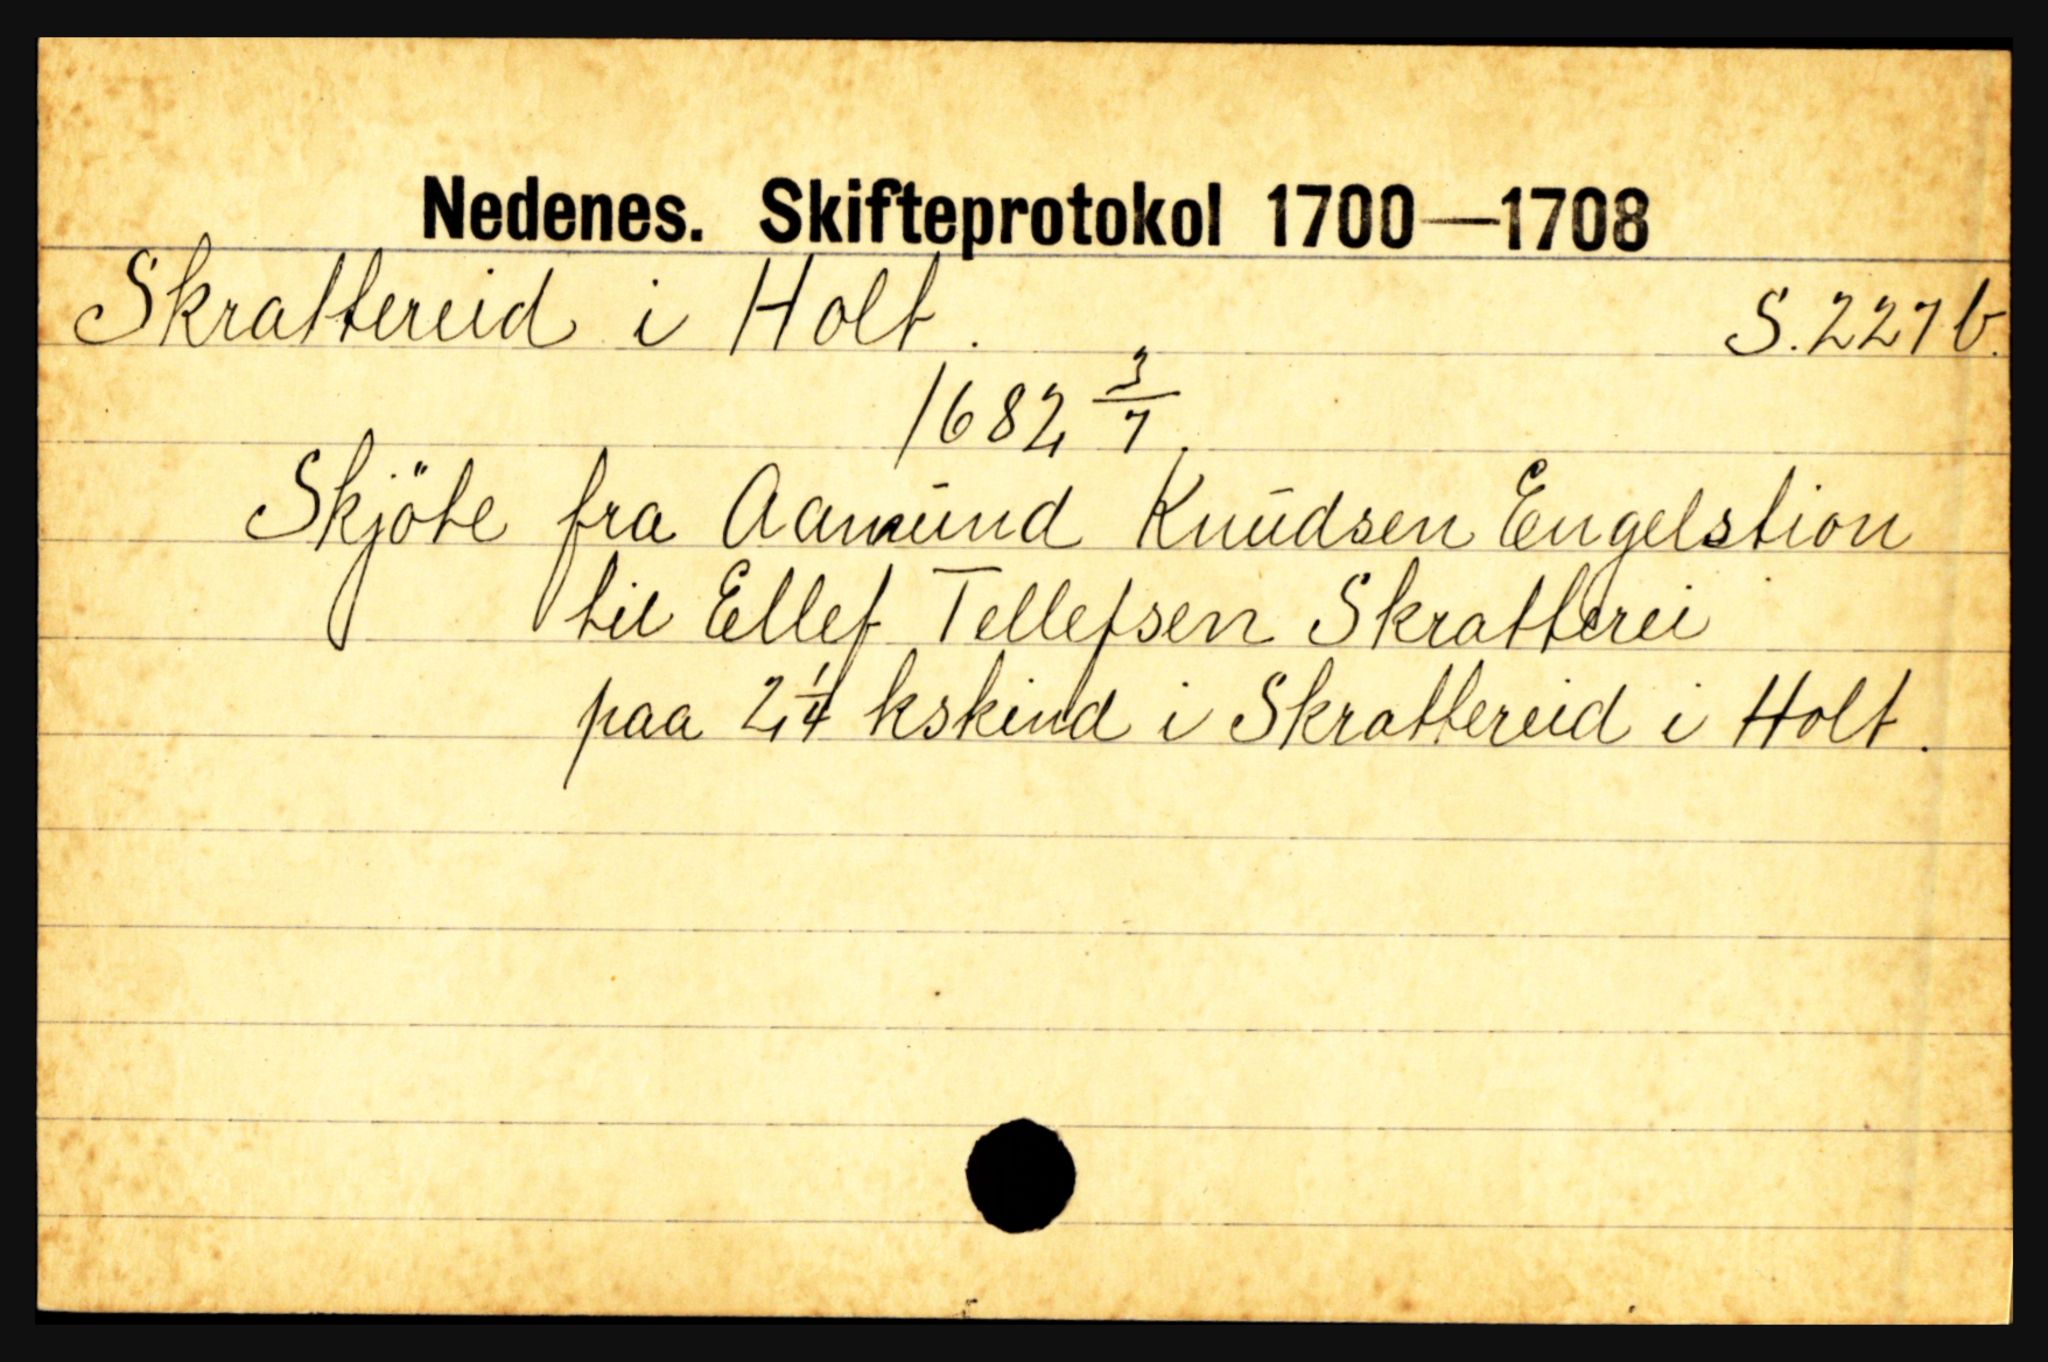 Nedenes. Skifteprotokol 1700—1708
Skrattereid i Holt. S. 227 b.
1682 3/7.
Skjöte fra Aamund Knudsen Engelstion
til Ellef Tellefsen Skratterei
paa 2 1/4 kskind i Skrattereid i Holt.